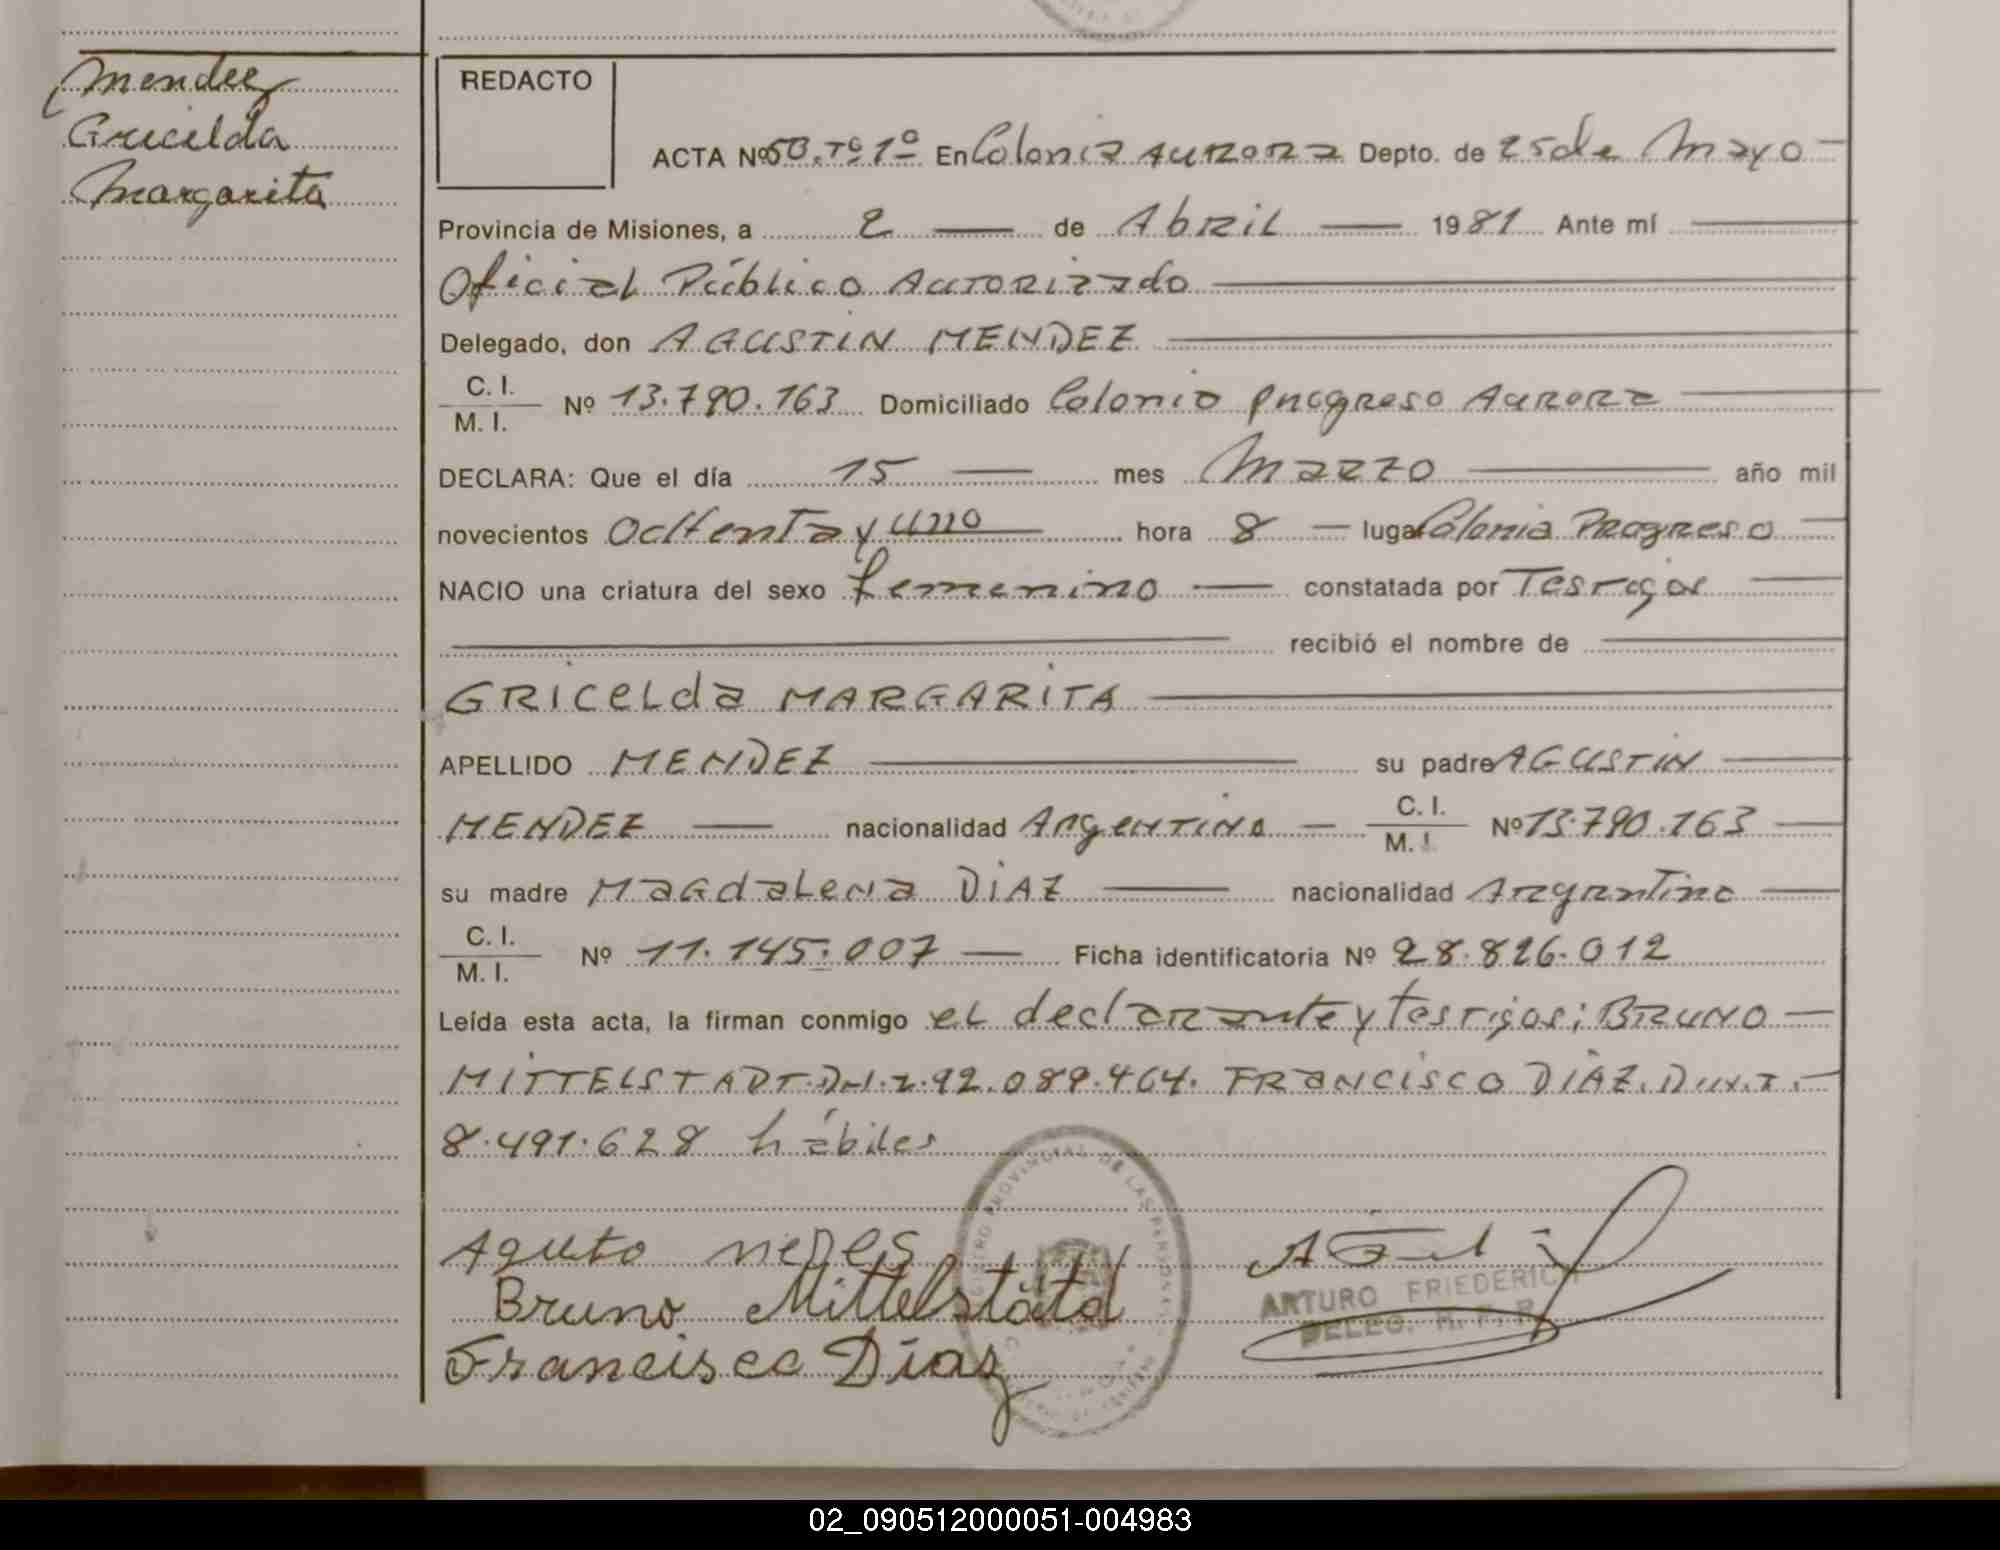 Mendez
Gricelda
Margarita
REDACTO
ACTA Nº 50. Tº 1º En Colonia Aurora Depto. de 25 de Mayo
Provincia de Misiones, a 2 de Abril 1981 Ante mí
Oficial Público Autorizado
Delegado, don AGUSTIN MENDEZ
C. I.
M. I. Nº 13.790.163 Domiciliado Colonia Progreso Aurora
DECLARA: Que el día 15 mes Marzo año mil
novecientos Ochenta y uno hora 8 lugar Colonia Progreso
NACIO una criatura del sexo femenino constatada por Testigos
recibió el nombre de
GRICELda MARGARITA
APELLIDO MENDEZ su padre AGUSTIN
MENDEZ nacionalidad Argentina C. I.
M. I. Nº 13.790.163
su madre Magdalena DIAZ nacionalidad Argentina
C. I.
M. I. Nº 11.145.007 Ficha identificatoria Nº 28.826.012
Leída esta acta, la firman conmigo el declarante y Testigos; BRUNO
MITTELSTADT. D.N.I. 92.089.464. FRANCISCO DIAZ. D.N.I.
8.491.628 hábiles
REGISTRO PROVINCIAL DE LAS PERSONAS
Bruno Mittelstätd
Francisco Díaz
ARTURO FRIEDERICH
DELEG. R. P. P.
02_090512000051-004983